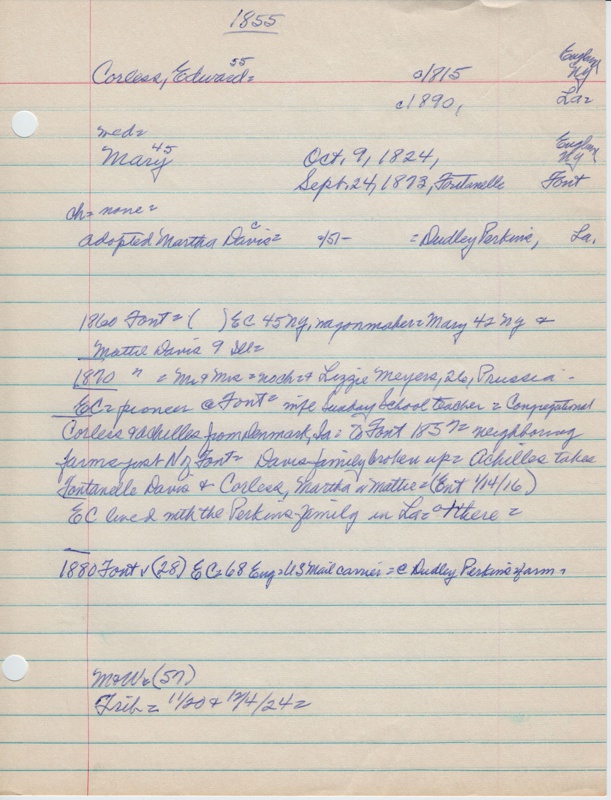 1855
Corless, Edward 55 = c1815 England NY
c1890, La=
med=
Mary 45 Oct, 9, 1824, England NY
Sept. 24, 1873, Fontanelle Font
ch= none=
adopted Martha Davis c = =/51- = Dudley Perkins, La.
1860 Font = ( ) EC 45 NY, wagonmaker = Mary 42 NY &
Mattie Davis 9 Ill=
1870 " = Mr & Mrs = no ch = & Lizzie Meyers, 26, Prussia -
EC = pioneer @ Font = wife Sunday School teacher = Congregational
Corless & Achilles from Denmark, Ia = To Font 1857 = neighboring
farms just N of Font = Davis family broken up = Achilles takes
Fontanelle Davis & Corless, Martha or Mattie = (Ent 1/14/16)
EC lived with the Perkins family in La = d there =
1880 Font v (28) EC = 68 Eng = US Mail carrier = @ Dudley Perkins farm =
M & W = (57)
Trib = 11/20 & 12/4/24 =